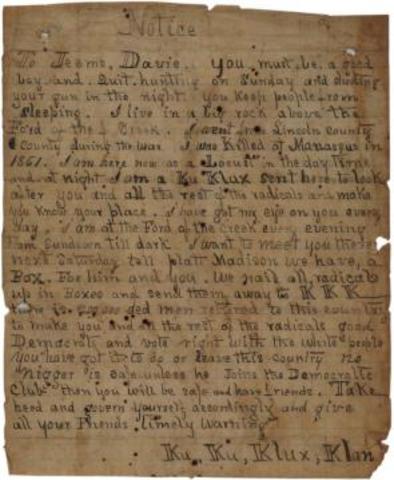 Notice
To Jeems, Davie. you, must, be, a good
boy. and. Quit. hunting on Sunday and shooting
your gun in the night. you keep people from
sleeping. I live in a big rock above the
Ford of the Creek. I went from Lincoln County
County during the War. I was Killed at Manassus in
1861. I am here now as a Locust in the day Time
and. at night I am a Ku Klux sent here to look
after you and all the rest of the radicals and make
you know your place. I have got my eye on you every
day. I am at the Ford of the creek every evening
From Sundown till dark. I want to meet you there
next Saturday tell platt Madison we have, a
Box. For him and you. We nail all, radicals
up in Boxes and send them away to KKK
men to this country
to make you and all the rest of the radicals good
Democrats and vote right with the white people
you have got it to do or leave this country no
Nigger is safe unless he Joins the Democratic
Club then you will be safe and have friends. Take
heed and govern yourself accordingly and give
all your Friends timely warning
Ku, Ku, Klux, Klan